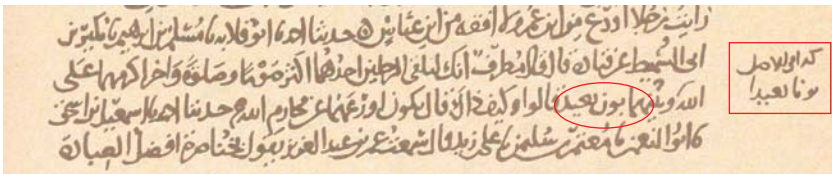 رايت رجلا اورع من ابن عمر ولا افقه من ابن عباس ٥ حدثنا احمد نا ابو قلابه نا مسلم بن ابرهيم نا بكير بن
ابي السميط عن قتادة قال قال مطرف انك لتلقى الرجلين احدهما اكثر صوما وصلوة واخر اكرمهما على
الله وبينهما بون بعيد قالوا وكيف ذاك قال يكون اورعهما عن محارم الله حدثنا احمد نا اسمعيل بن اسحق
نا ابو النعمن نا معتمر بن سليمن نا علي بن زيد قال سمعت عمر بن عبد العزيز يقول بخناصرة افضل العبادة
كذا في الاصل
بونا بعيدا